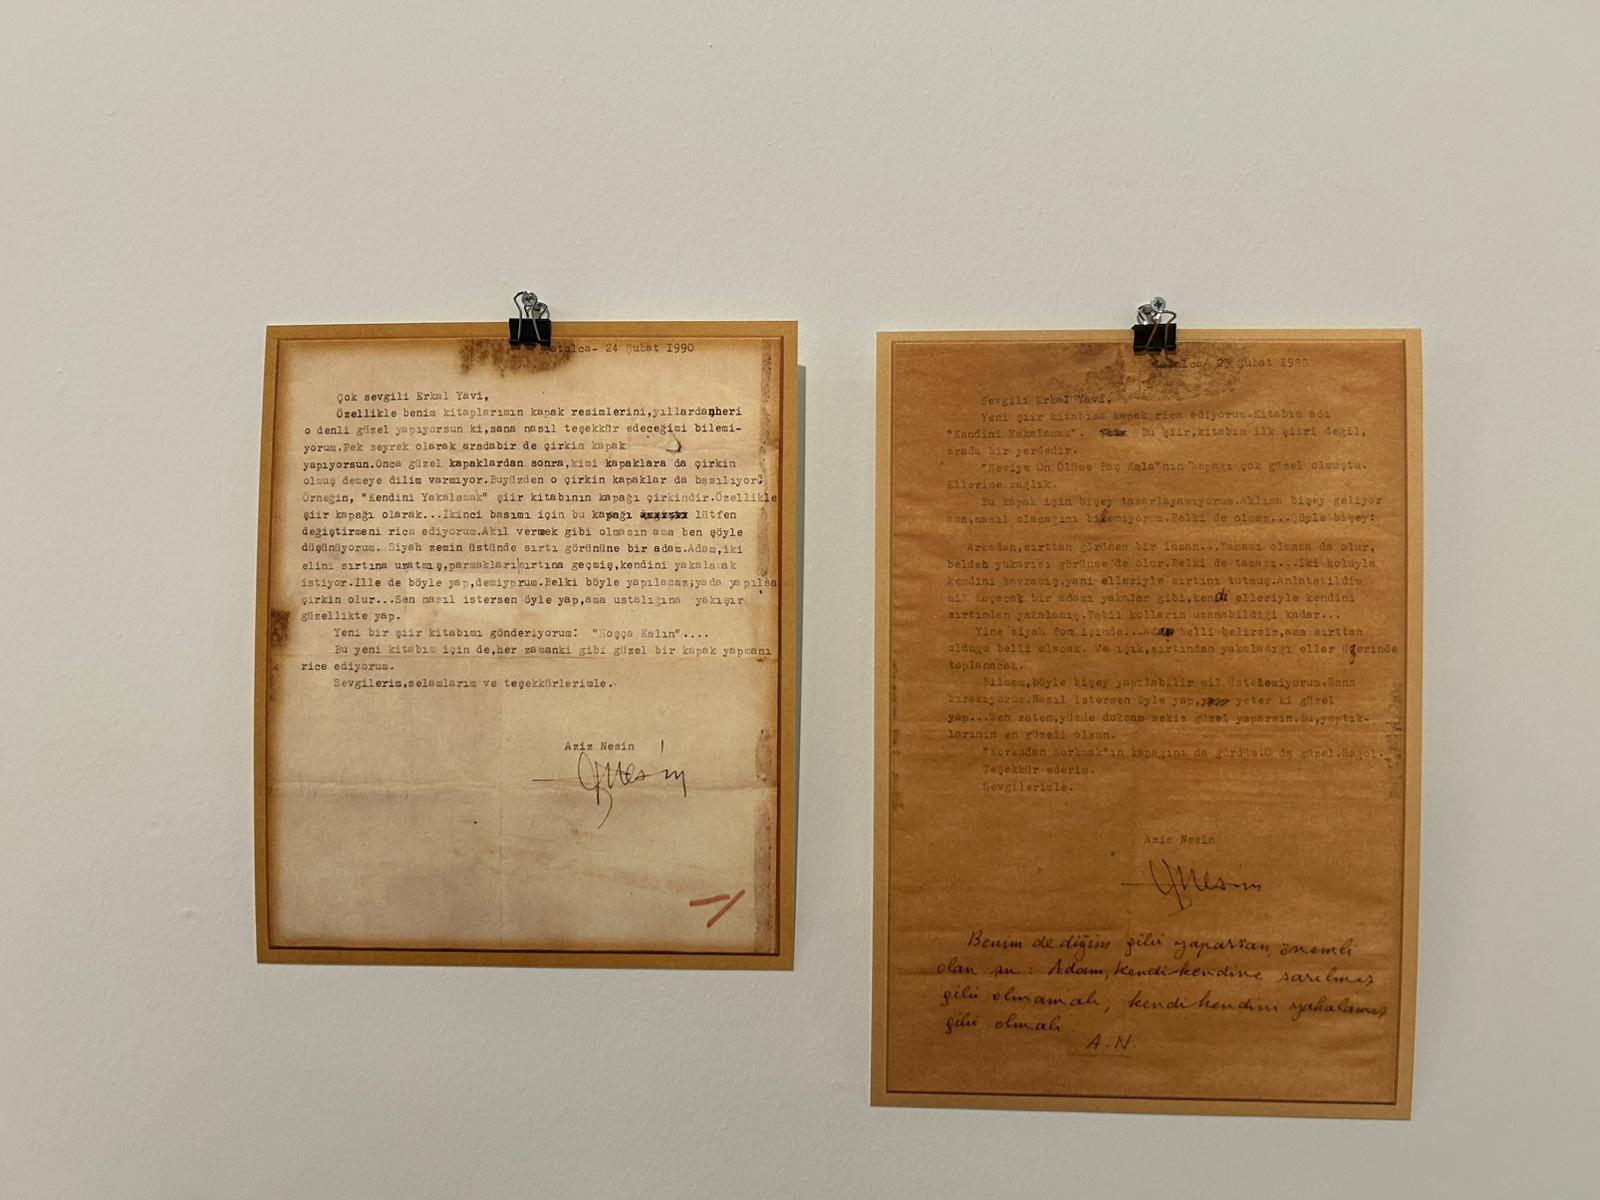 Çatalca- 24 Şubat 1990
Çok sevgili Erkal Yavi,
Özellikle benim kitaplarımın kapak resimlerini,yıllardanberi
o denli güzel yapıyorsun ki,sana nasıl teşekkür edeceğimi bilemi-
yorum.Pek seyrek olarak aradabir de çirkin kapak
yapıyorsun.Onca güzel kapaklardan sonra,kimi kapaklara da çirkin
olmuş demeye dilim varmıyor.Buyüzden o çirkin kapaklar da basılıyor.
Örneğin, "Kendini Yakalamak" şiir kitabının kapağı çirkindir.Özellikle
şiir kapağı olarak...İkinci basımı için bu kapağı lütfen
değiştirmeni rica ediyorum. Akıl vermek gibi olmasın ama ben şöyle
düşünüyorum. Siyah zemin üstünde sırtı görününe bir adam.Adam,iki
elini sırtına uzatmış,parmakları sırtına geçmiş,kendini yakalamak
istiyor.İlle de böyle yap,demiyprum.Belki böyle yapılamaz,yada yapılsa
çirkin olur...Sen nasıl istersen öyle yap,ama ustalığına yakışır
güzellikte yap.
Yeni bir şiir kitabımı gönderiyorum: "Hoşça Kalın"....
Bu yeni kitabım için de,her zamanki gibi güzel bir kapak yapmanı
rice ediyorum.
Sevgilerim,selamlarım ve teşekkürlerimle.
Aziz Nesin
Şubat 1988
Sevgili Erkal Yavi,
Yeni şiir kitabıma kapak rica ediyorum.Kitabın adı
"Kendini Yakalamak". Bu şiir,kitabın ilk şiiri değil,
arada bir yerdedir.
"Seviye On Ölüme Beş Kala"nın kapağı çok güzel olmuştu.
Ellerine sağlık.
Bu kapak için bişey tasarlayamıyorum.Aklıma bişey geliyor
ama,nasıl olacağını bilemiyorum.Belki de olmaz...Şöyle bişey:
Arkadan,sırttan görünen bir insan...Tamamı olmasa da olur,
belden yukarısı görünse de olur.Belki de tamamı...İki koluyla
kendini kavramış,yani elleriyle sırtını tutmuş.Anlatabildim
mi? Kaçacak bir adamı yakalar gibi,kendi elleriyle kendini
sırtından yakalamış.Tabii kolların uzanabildiği kadar...
Yine siyah fon içinde...Adam belli belirsiz,ama sırttan
olduğu belli olacak. Ve ışık,sırtından yakaladığı eller üzerinde
toplanacak.
Bilmem,böyle bişey yapılabilir mi? Üstelemiyorum.Sana
bırakıyorum.Nasıl istersen öyle yap, yeter ki güzel
yap...Sen zaten,yüzde doksan sekiz güzel yaparsın.Bu,yaptık-
larının en güzeli olsun.
"Korkudan Korkmak"ın kapağını da gördüm.O da güzel.Sağol.
Teşekkür ederim.
Sevgilerimle.
Aziz Nesin
Benim dediğim gibi yaparsan, önemli
olan şu: Adam, kendi-kendine sarılmış
gibi olmamalı, kendi kendini yakalamış
gibi olmalı.
A.N.